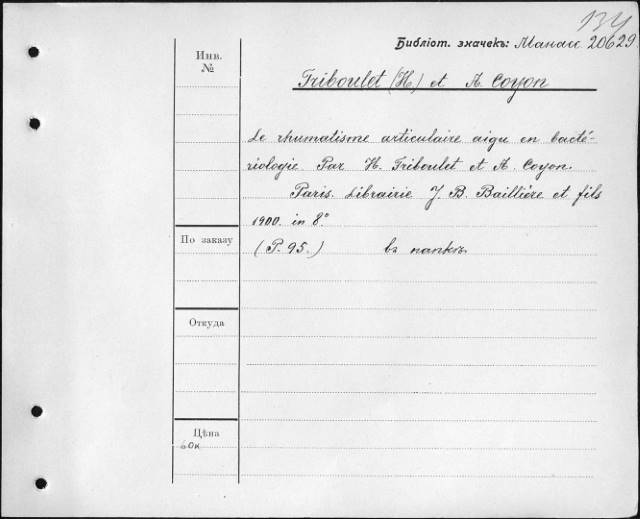 134
Библіот. значекъ: Манасс 20629.
Инв.
№
Triboulet (H.) et A. Coyon
Le rhumatisme articulaire aigu en bacté-
riologie. Par H. Triboulet et A. Coyon.
Paris. Librairie J. B. Baillière et fils
1900. in 8º
По заказу
(P. 95.) въ папкѣ.
Откуда
Цѣна
60к